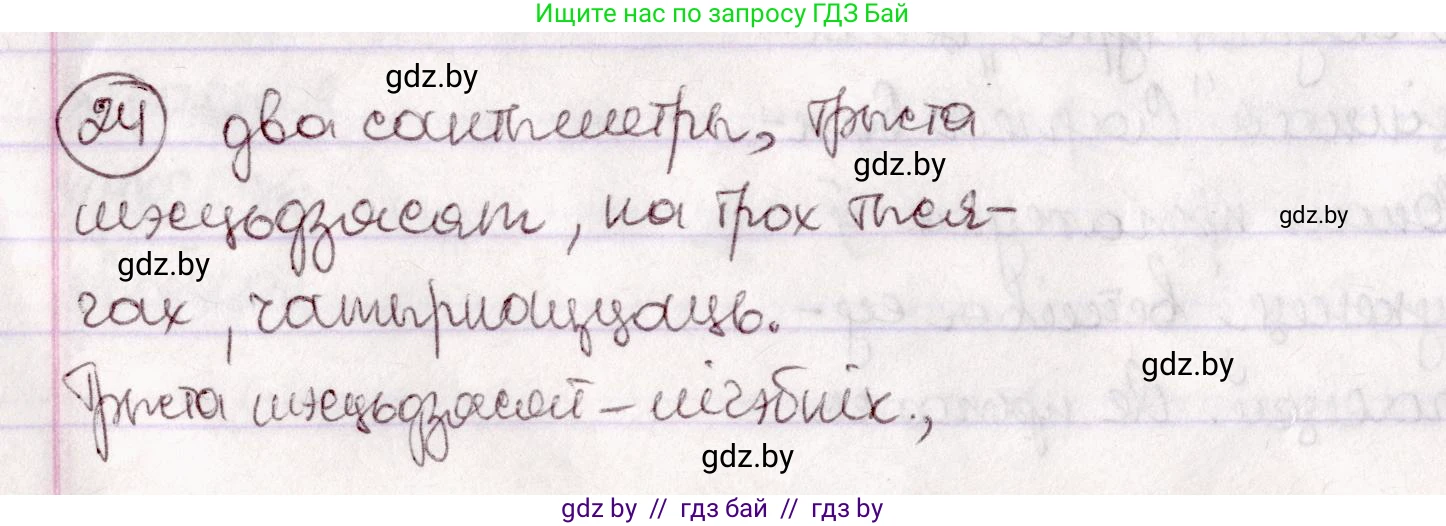 Ищите нас по запросу ГДЗ Бай
gdz.by
24 два сантыметры, трыста
gdz.by
шэсцьдзясят, на трох тыся-
gdz.by
gdz.by
чах, чатырнаццаць.
gdz.by
Трыста шэсцьдзясят – лічэбнік.,
gdz.by
gdz.by // гдз бай // гдз by